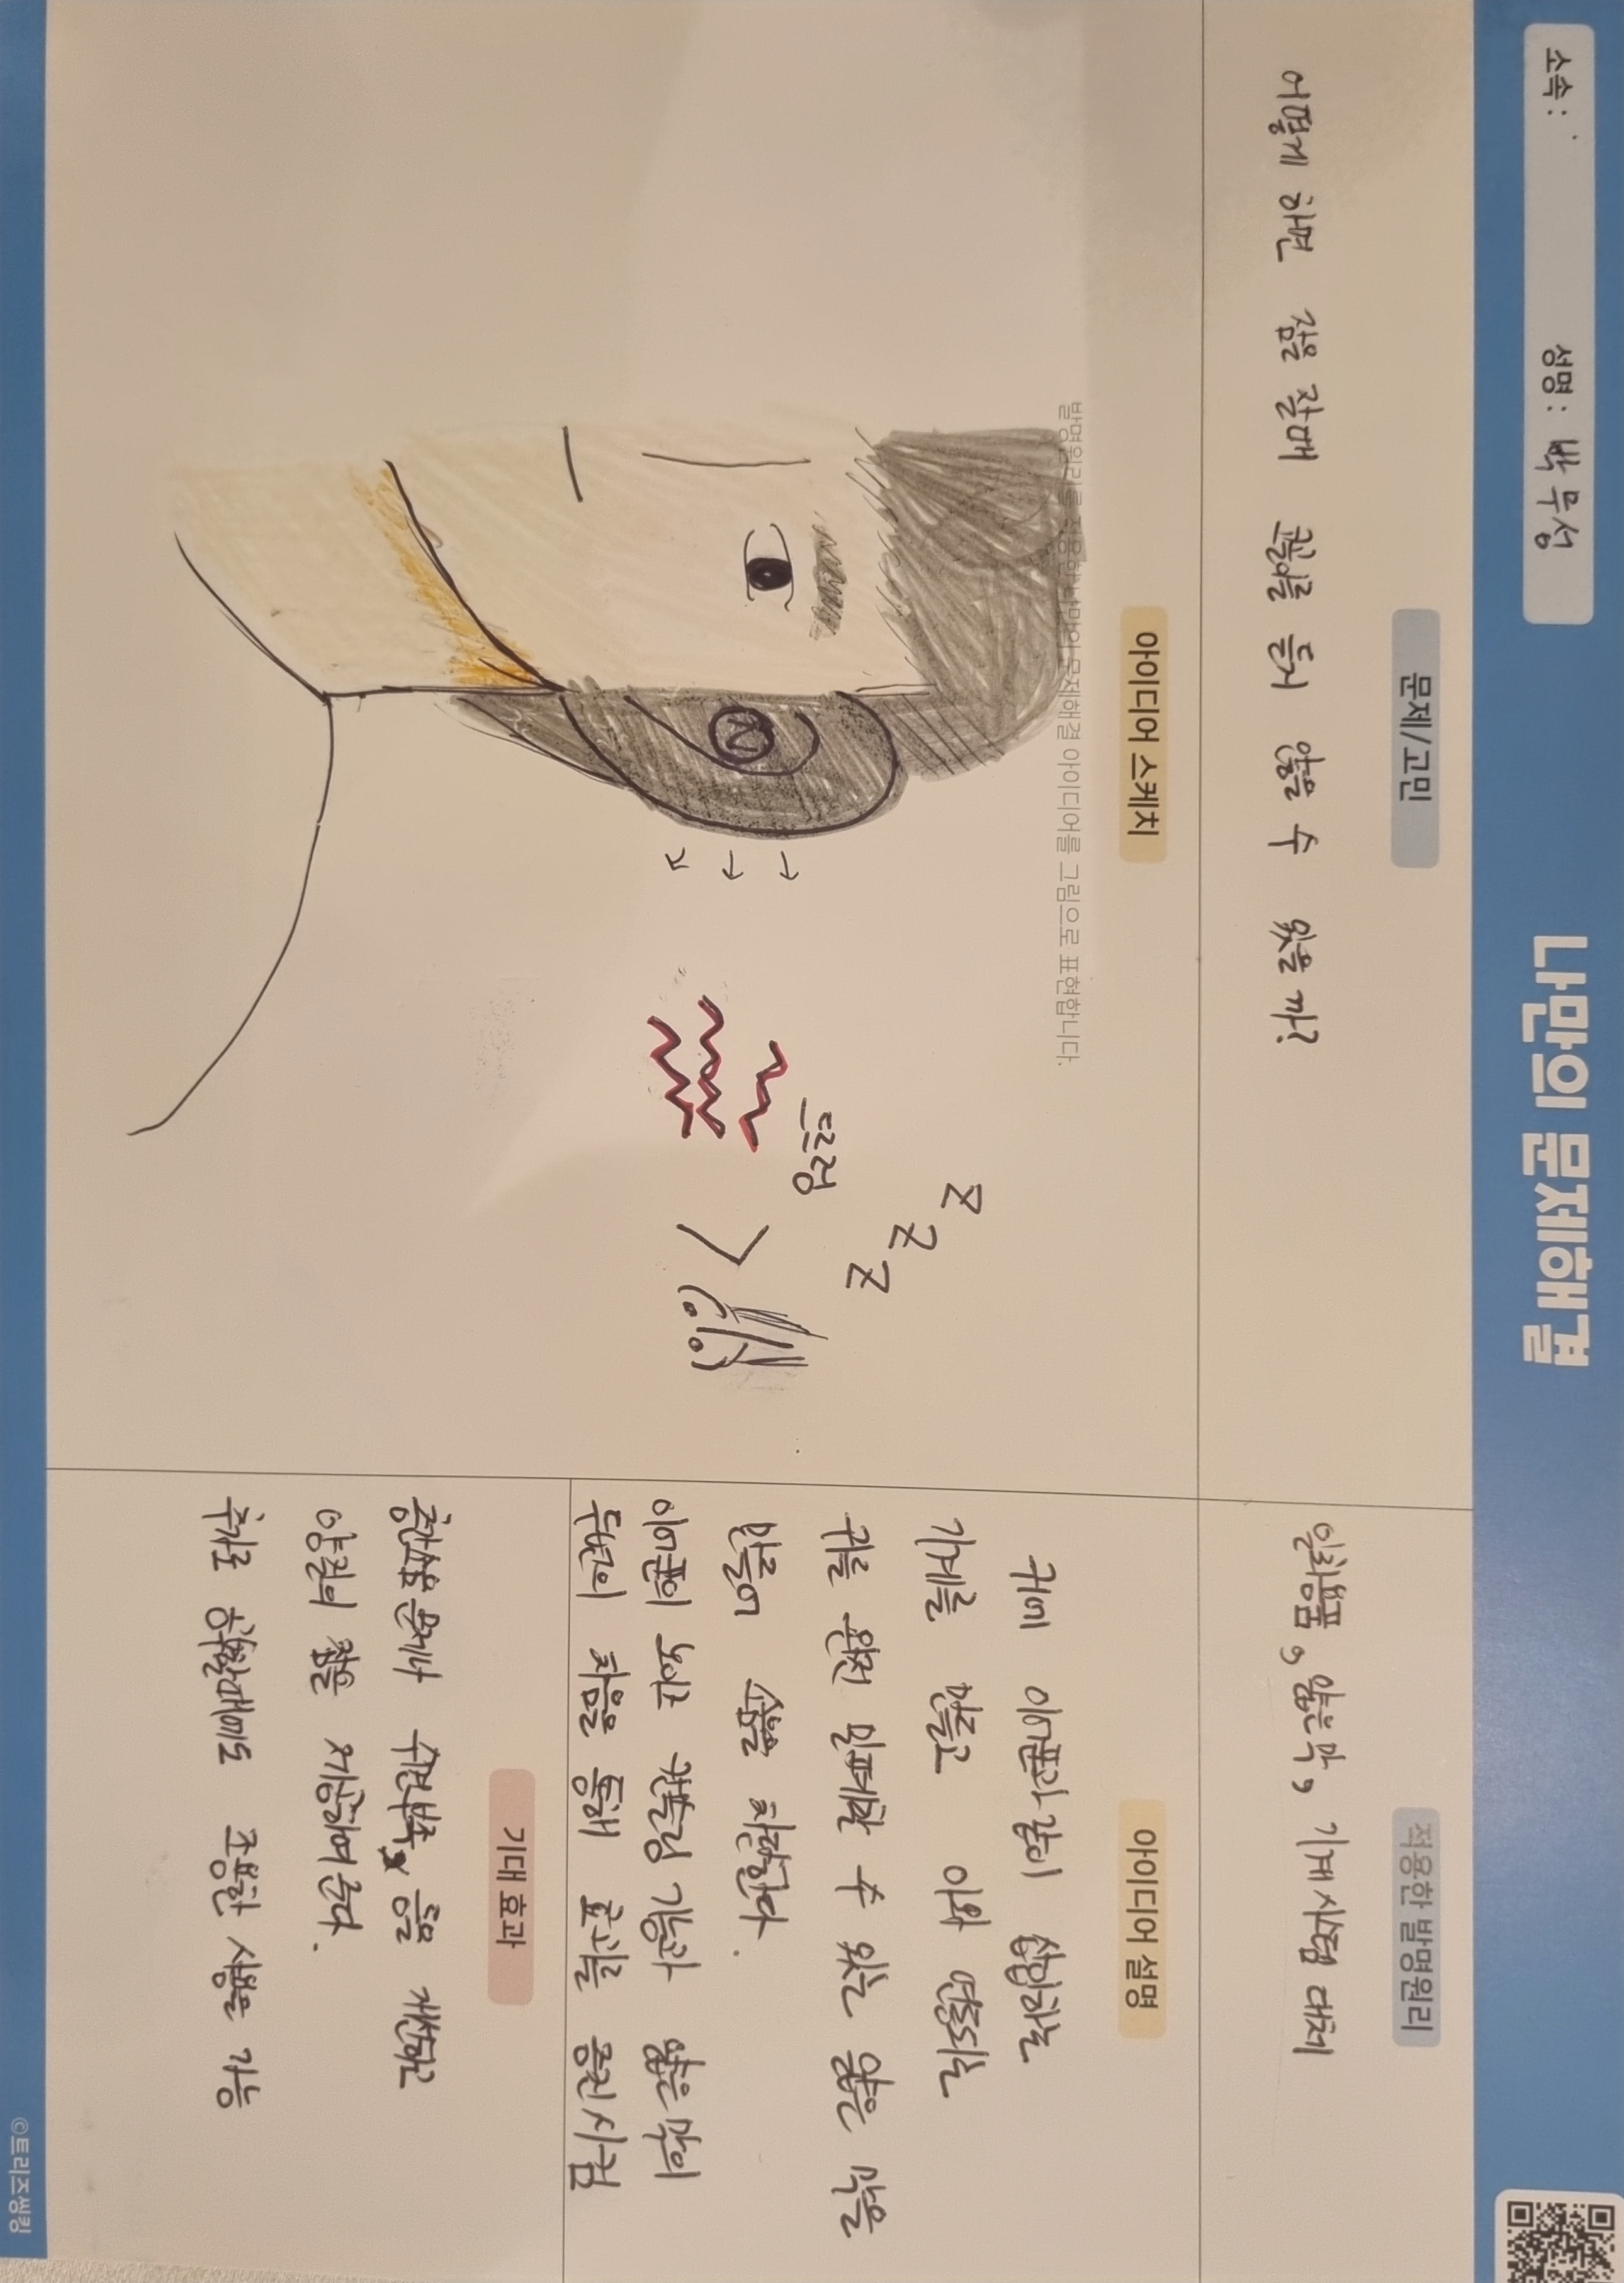 소속 :
성명 : 박무성
나만의 문제해결
문제/고민
어떻게 하면 잠을 잘때 코골이를 듣지 않을 수 있을 까?
적용한 발명원리
일회용품, 얇은 막, 기계 시스템 대체
아이디어 스케치
발명원리를 적용한 나만의 문제해결 아이디어를 그림으로 표현합니다.
Z
Z
Z
드르렁
아이디어 설명
귀에 이어폰과 같이 삽입하는
기계를 만들고 이와 연동되는
귀를 완전 밀폐할 수 있는 얇은 막을
만들어 소음을 차단한다.
이어폰의 노이즈 캔슬링 기능과 얇은 막의
두번의 차음을 통해 효과를 증진 시킴
기대 효과
층간소음 문제나 수면부족, 등을 개선하고
양질의 잠을 제공하여 준다.
추가로 공부할때에도 조용한 사용은 가능
©트리즈씽킹